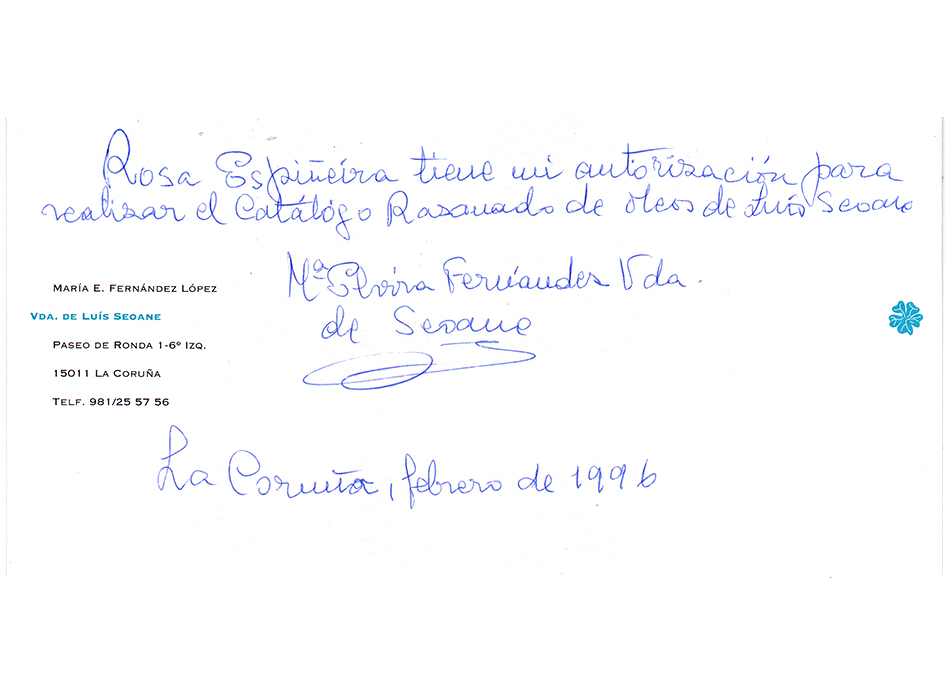 Rosa Espiñeira tiene mi autorización para
realizar el Catálogo Razonado de óleos de Luís Seoane
Mª Elvira Fernández Vda.
de Seoane
MARÍA E. FERNÁNDEZ LÓPEZ
VDA. DE LUÍS SEOANE
PASEO DE RONDA 1-6º IZQ.
15011 LA CORUÑA
TELF. 981/25 57 56
La Coruña, febrero de 1996